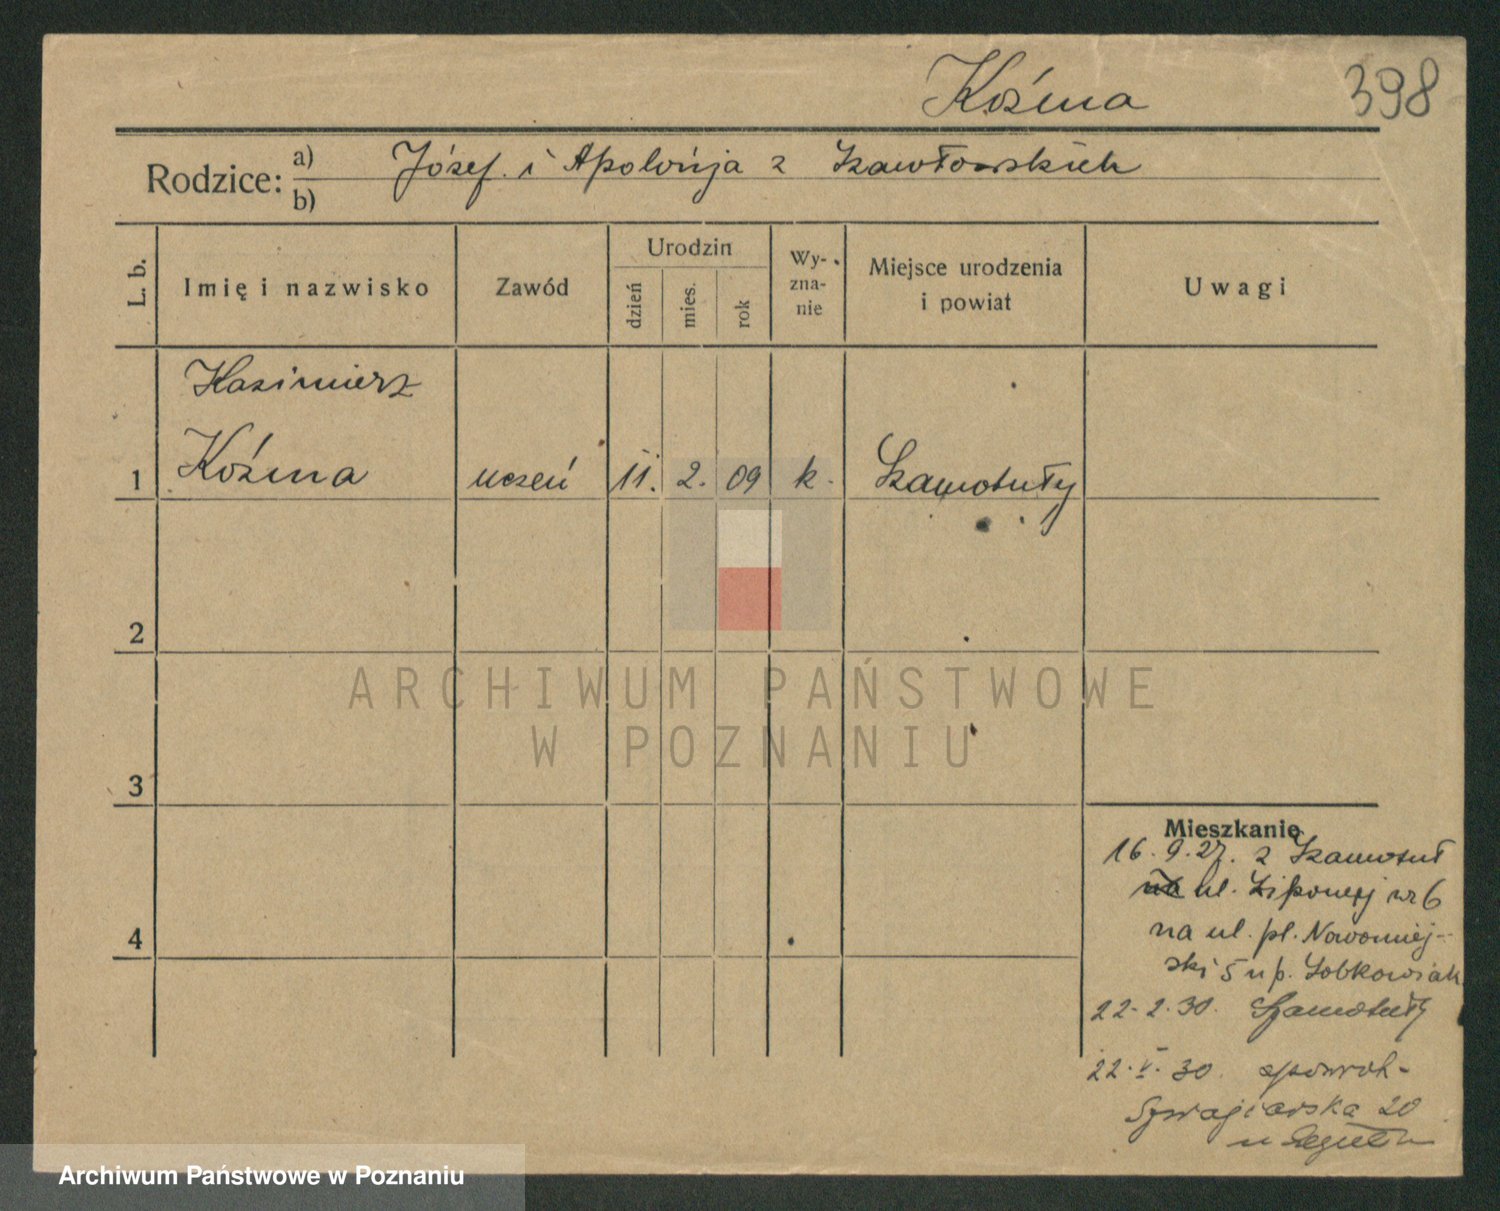 Koźma 398
Rodzice: a) Józef i Apolonja z Szawłowskich
b)
L. b. Imię i nazwisko Zawód Urodzin dzień mies. rok Wy-zna-nie Miejsce urodzenia i powiat Uwagi
Kazimierz
1 Koźma uczeń 11. 2. 09 k. Szamotuły
2
ARCHIWUM PAŃSTWOWE
W POZNANIU
3
Mieszkanie
16.9.27. z Szamotuł
ul. Lipowej nr 6
4 na ul. pl. Nowomiej-
ski 5 u p. Sobkowiak
22.2.30. Szamotuły
22.V.30
20
u
Archiwum Państwowe w Poznaniu